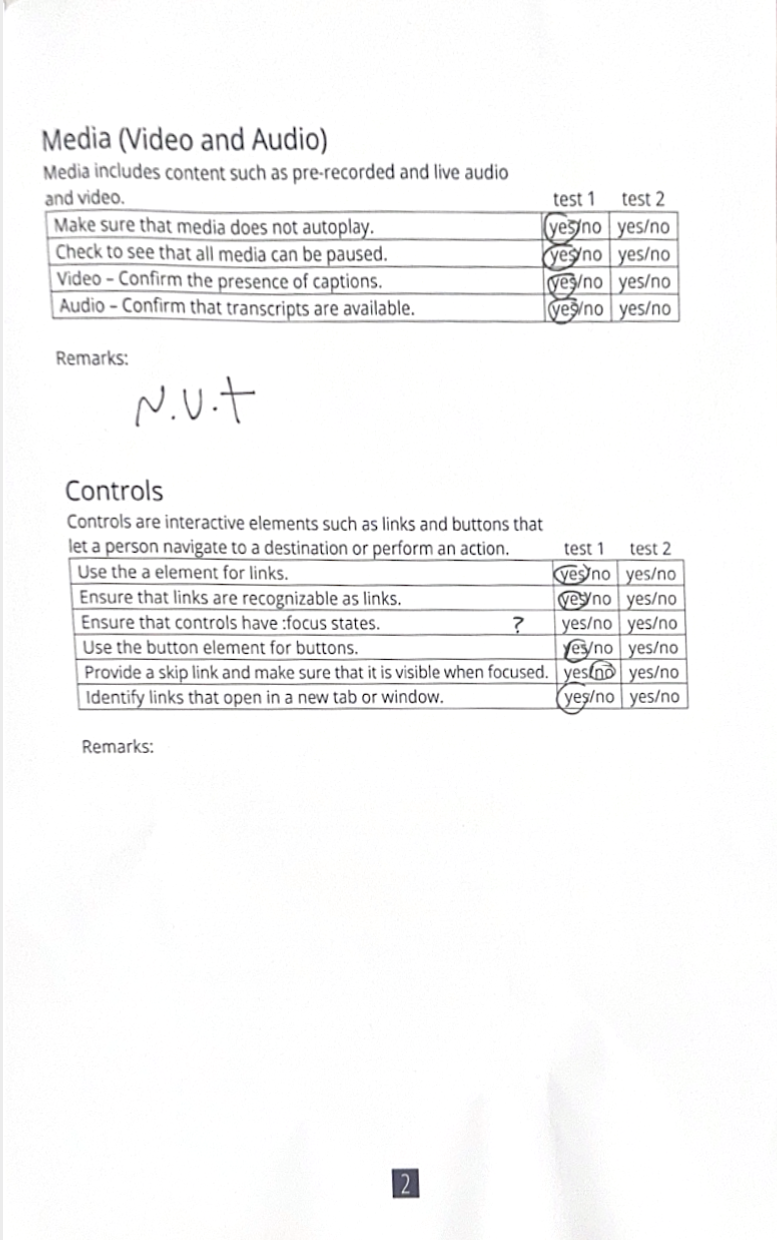 Media (Video and Audio)
Media includes content such as pre-recorded and live audio
and video. test 1 test 2
Make sure that media does not autoplay. yes/no yes/no
Check to see that all media can be paused. yes/no yes/no
Video – Confirm the presence of captions. yes/no yes/no
Audio – Confirm that transcripts are available. yes/no yes/no
Remarks:
N.U.t
Controls
Controls are interactive elements such as links and buttons that
let a person navigate to a destination or perform an action. test 1 test 2
Use the a element for links. yes/no yes/no
Ensure that links are recognizable as links. yes/no yes/no
Ensure that controls have :focus states. ? yes/no yes/no
Use the button element for buttons. yes/no yes/no
Provide a skip link and make sure that it is visible when focused. yes/no yes/no
Identify links that open in a new tab or window. yes/no yes/no
Remarks:
2